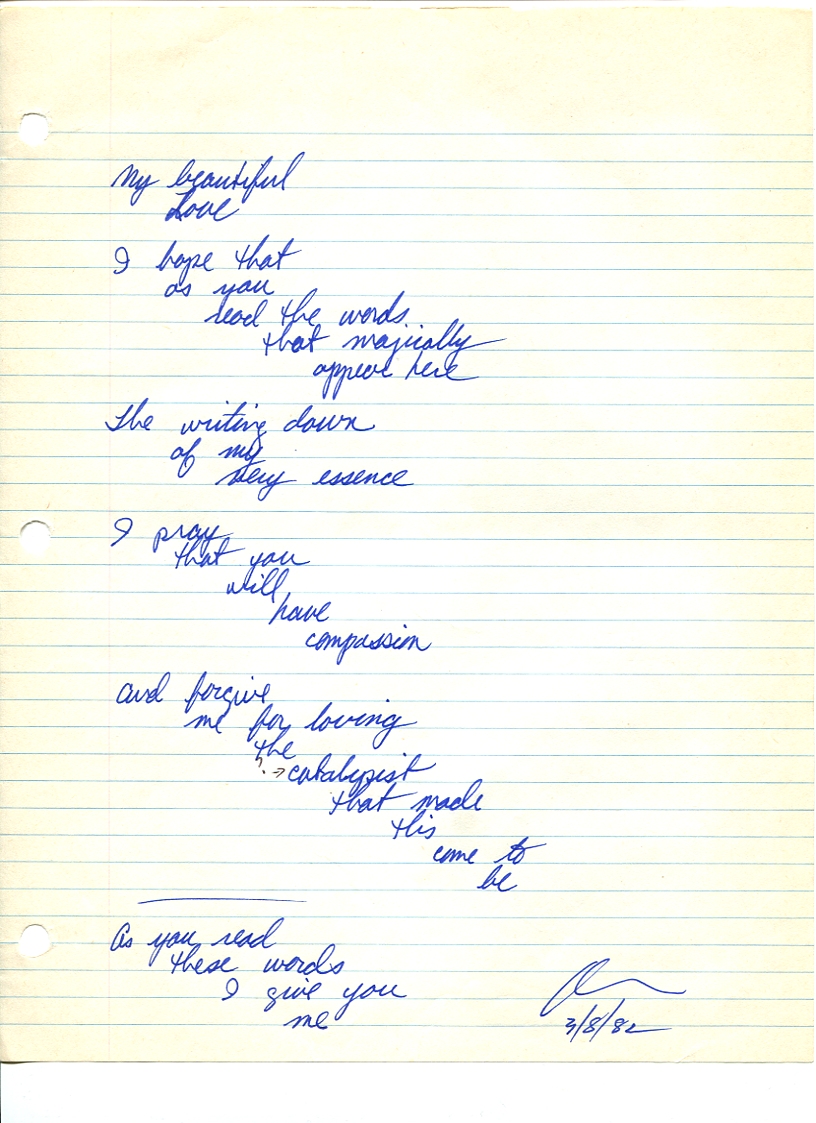 My beautiful
Love
I hope that
as you
read the words
that majically
appear here
The writing down
of my
very essence
I pray
that you
will
have
compassion
and forgive
me for loving
the
? → catalypist
that made
this
come to
be
As you read
these words
I give you
me
3/8/82